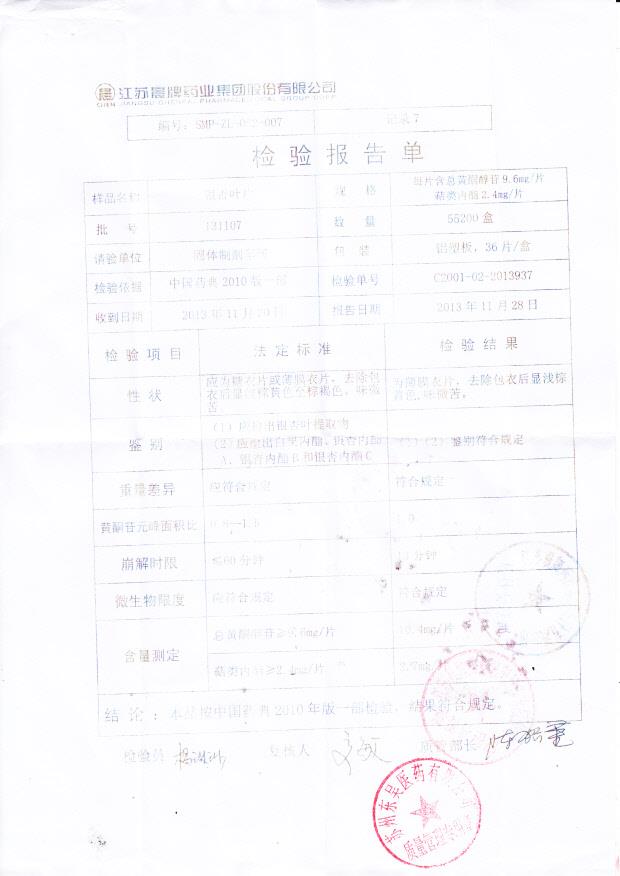 江苏晨牌药业集团股份有限公司
编号：SMP-ZL-002-007 记录7
检验报告单
样品名称 银杏叶片 规格 每片含总黄酮醇苷9.6mg/片
萜类内酯2.4mg/片
批号 131107 数量 55200盒
请验单位 固体制剂车间 包装 铝塑板，36片/盒
检验依据 中国药典2010版一部 检验单号 C2001-02-2013937
收到日期 2013年11月 报告日期 2013年11月28日
检验项目 法定标准 检验结果
性状 应为糖衣片或薄膜衣片，去除包
衣后显浅棕黄色至棕褐色，味微
苦。
为薄膜衣片，去除包衣后显浅棕
黄色，味微苦。
鉴别 （1）应检出银杏叶提取物
（2）应检出白果内酯、银杏内酯
A、银杏内酯B和银杏内酯C
（1）（2）鉴别符合规定
重量差异 应符合规定 符合规定
黄酮苷元峰面积比 0.8—1.5 1.0
崩解时限 ≤60分钟 分钟
微生物限度 应符合规定 符合规定
含量测定 总黄酮醇苷≥9.6mg/片 10.4mg/片
萜类内酯≥2.4mg/片 2.7mg
结论：本品按中国药典2010年版一部检验，结果符合规定。
检验员 复核人 质管部长
苏州东吴医药有限公司
质量管理专用章